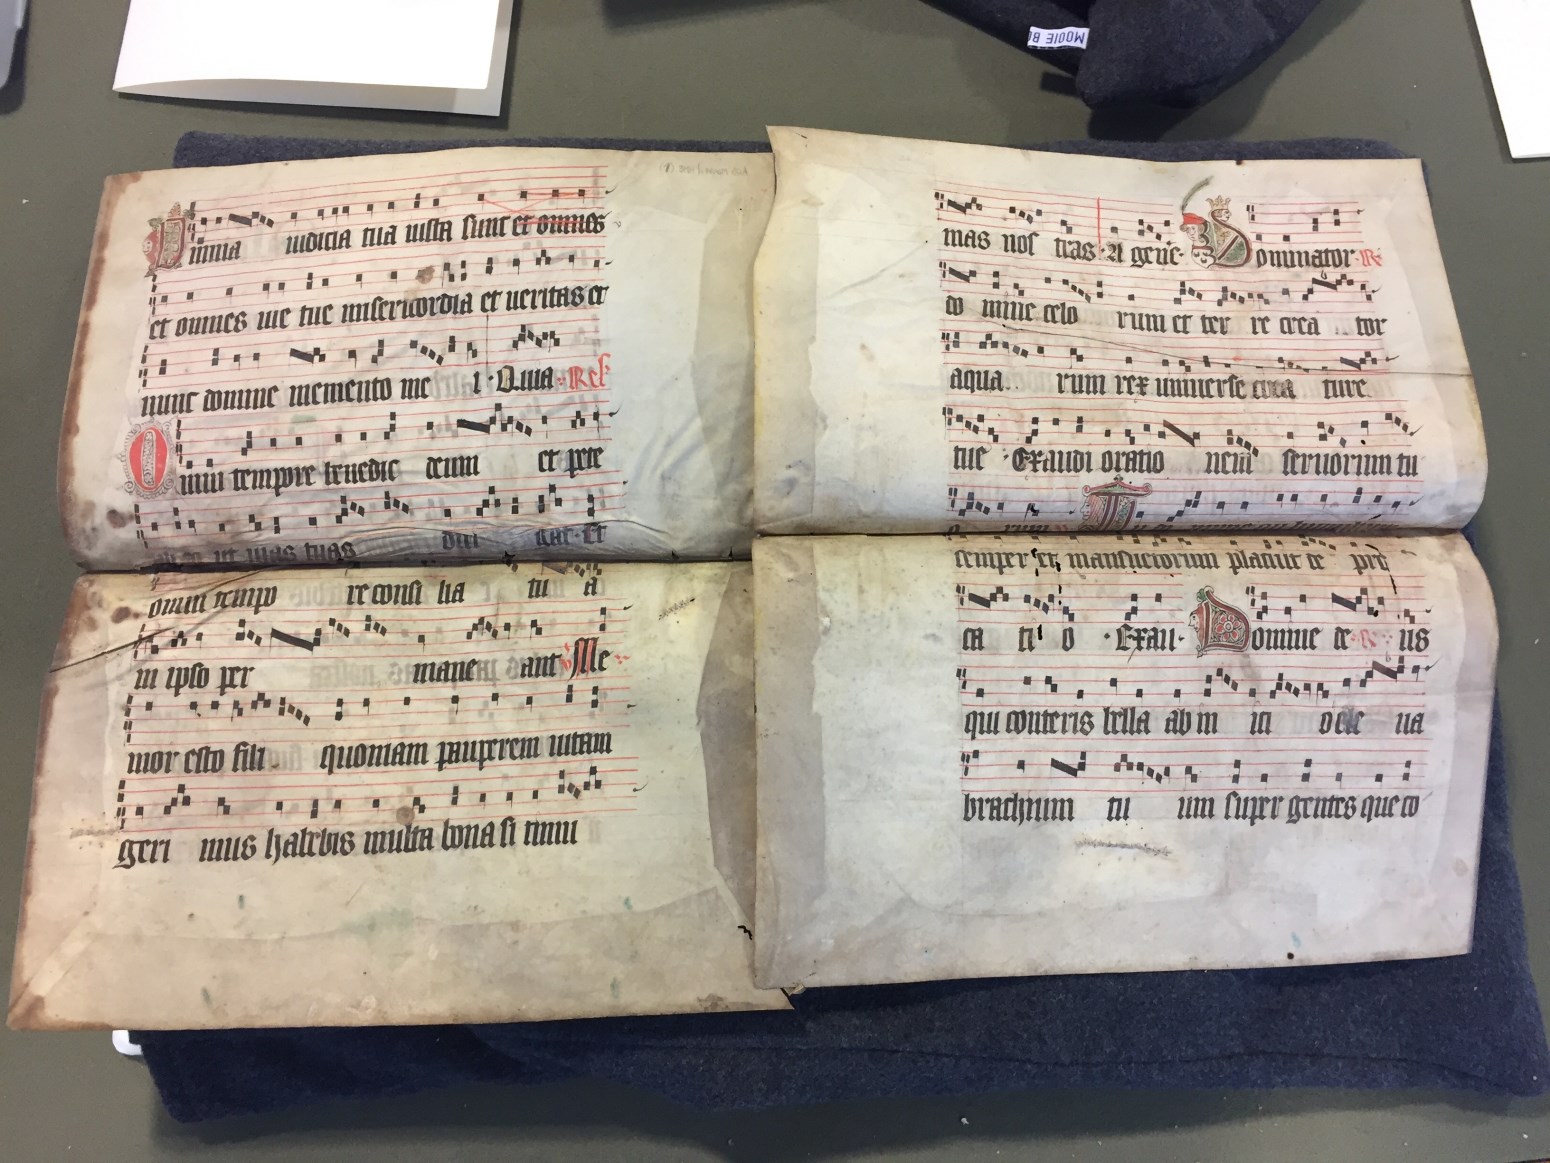 MOOIE B
Omnia iudicia tua iusta sunt et omnes
et omnes uie tue misericordia et ueritas et
nunc domine memento me i · Qͥua · Res
Omni tempore benedic deum et pete
ab eo ut uias tuas diri gat · Et
omni tempo re consi lia tu a
in ipso per mane ant Me
mor esto fili quoniam pauperem uitam
geri mus habebis multa bona si timu
mas nos tras · A genͤe · Dominator · R
do mine celo rum et ter re crea tor
aqua rum rex uniuerse crea ture
tue · Exaudi oratio nem seruorum tu
o rum
semper et mansuetorum placuit te pre
ca ti o · Exau · Domine de R us
qui conteris bella ab in iti o ele ua
brachium tu um super gentes que co